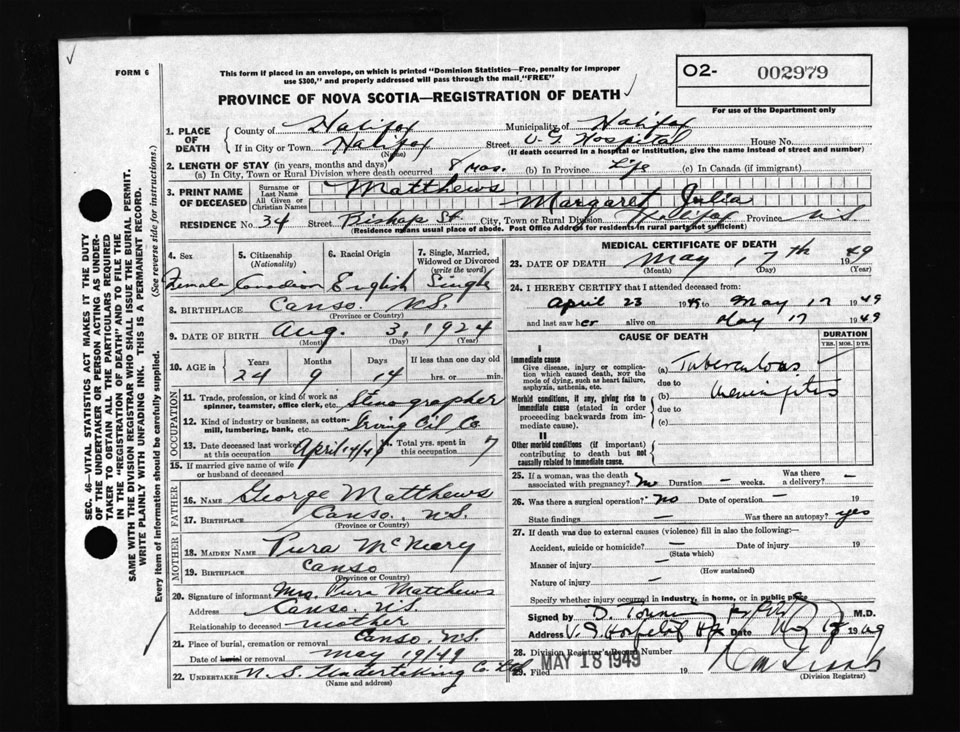 FORM 6
This form if placed in an envelope, on which is printed "Dominion Statistics—Free, penalty for improper
use $300," and properly addressed will pass through the mail "FREE"
PROVINCE OF NOVA SCOTIA—REGISTRATION OF DEATH
O2- 002979
For use of the Department only
SEC. 46—VITAL STATISTICS ACT MAKES IT THE DUTY
OF THE UNDERTAKER OR PERSON ACTING AS UNDER-
TAKER TO OBTAIN ALL THE PARTICULARS REQUIRED
IN THE "REGISTRATION OF DEATH" AND TO FILE THE
SAME WITH THE DIVISION REGISTRAR WHO SHALL ISSUE THE BURIAL PERMIT.
WRITE PLAINLY WITH UNFADING INK. THIS IS A PERMANENT RECORD.
Every item of information should be carefully supplied. (See reverse side for instructions.)
1. PLACE OF DEATH County of Halifax Municipality of Halifax
If in City or Town Halifax Street V. G. Hospital House No.
(Name) (If death occurred in a hospital or institution, give the name instead of street and number)
2. LENGTH OF STAY (in years, months and days)
(a) In City, Town or Rural Division where death occurred 8 mos. (b) In Province Life (c) In Canada (if immigrant)
3. PRINT NAME OF DECEASED Surname or Last Name Matthews
All Given or Christian Names Margaret Julia
RESIDENCE No. 34 Street Bishop St. City, Town or Rural Division Halifax Province N.S.
(Residence means usual place of abode. Post Office Address for residents in rural parts not sufficient)
4. Sex 5. Citizenship (Nationality) 6. Racial Origin 7. Single, Married, Widowed or Divorced (write the word)
Female Canadian English Single
8. BIRTHPLACE Canso. N.S.
(Province or Country)
9. DATE OF BIRTH Aug. 3, 1924
(Month) (Day) (Year)
10. AGE in Years Months Days If less than one day old
24 9 14 hrs. or min.
OCCUPATION
11. Trade, profession, or kind of work as spinner, teamster, office clerk, etc. Stenographer
12. Kind of industry or business, as cotton-mill, lumbering, bank, etc. Irving Oil Co
13. Date deceased last worked at this occupation April 14/49 14. Total yrs. spent in this occupation 7
15. If married give name of wife or husband of deceased
FATHER
16. NAME George Matthews
17. BIRTHPLACE Canso. N.S.
(Province or Country)
MOTHER
18. MAIDEN NAME
19. BIRTHPLACE Canso
(Province or Country)
20. Signature of informant Mrs. Matthews
Address Canso. N.S.
Relationship to deceased mother
21. Place of burial, cremation or removal Canso. N.S.
Date of burial or removal May 19/49
22. UNDERTAKER N.S. Undertaking Co. Ltd
(Name and address)
MEDICAL CERTIFICATE OF DEATH
23. DATE OF DEATH May 17th 1949
(Month) (Day) (Year)
24. I HEREBY CERTIFY that I attended deceased from
April 23 1949 to May 17 1949
and last saw her alive on May 17 1949
CAUSE OF DEATH DURATION
YRS. MOS. DYS.
I
Immediate cause
Give disease, injury or complication which caused death, NOT the mode of dying, such as heart failure, asphyxia, asthenia, etc.
(a) Tuberculous
due to
Morbid conditions, if any, giving rise to immediate cause (stated in order proceeding backwards from immediate cause).
(b) Meningitis
due to
(c)
II
Other morbid conditions (if important) contributing to death but not causally related to immediate cause.
25. If a woman, was the death associated with pregnancy? No Duration — weeks. Was there a delivery? —
26. Was there a surgical operation? No Date of operation — 19
State findings — Was there an autopsy? yes
27. If death was due to external causes (violence) fill in also the following:—
Accident, suicide or homicide? — Date of injury 19
(State which)
Manner of injury —
(How sustained)
Nature of injury —
Specify whether injury occurred in industry, in home, or in public place
Signed by M.D.
Address V. G. Hospital Hfx Date May 18 1949
28. Division Registrar's Record Number
MAY 18 1949
29. Filed 19
(Division Registrar)